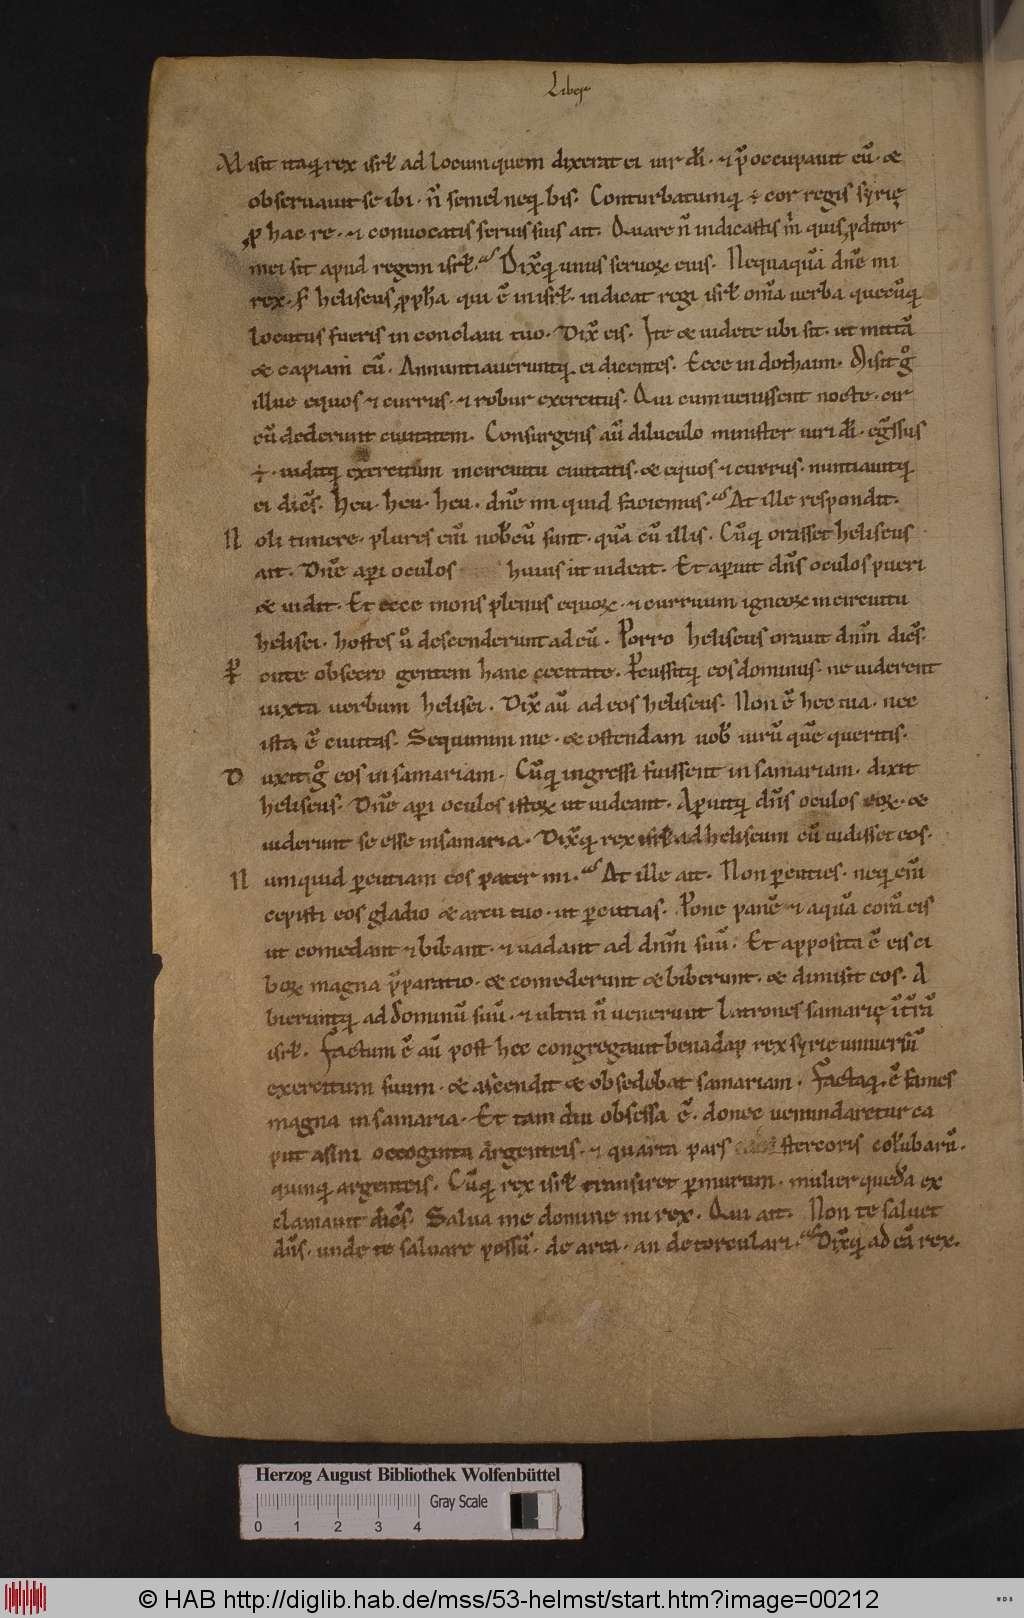 Liber
Misit itaq; rex isrł ad locum quem dixerat ei uir dı̄. ⁊ p̄occupauit eū. &
obseruauit se ibi. n̄ semel neq; bis. Conturbatumq; ÷ cor regis syrię
ꝓ hac re. ⁊ conuocatis seruis suis ait. Quare n̄ indicastis m̄ quis ꝓditor
mei sit apud regem isrł. Dixq; unus seruoꝝ eius. Nequaquā dn̄e mi
rex. s; heliseus ꝓpha qui ē in isrł. indicat regi isrł om̄a uerba quecūq;
locutus fueris in conclaui tuo. Dix̄ eis. Ite & uidete ubi sit. ut mittā
& capiam eū. Annuntiaueruntq; ei dicentes. Ecce in dothaim. Misit gͦ
illuc equos ⁊ currus. ⁊ robur exercitus. Qui cum uenissent nocte. cir
cū dederunt ciuitatem. Consurgens aū diluculo minister uiri dı̄. eg̃ssus
÷. uiditq; exercitum in circuitu ciuitatis. & equos ⁊ currus. nuntiauitq;
ei dicēs. Heu. heu. heu. dn̄e mi quid faciemus. At ille respondit.
Noli timere. plures eni̅ nob̄cū sunt. quā cū illis. Cūq; orasset heliseus
ait. Dn̄e aꝑi oculos huius ut uideat. Et aꝑuit dn̄s oculos pueri
& uidit. Et ecce mons plenus equoꝝ. ⁊ curruum igneoꝝ in circuitu
helisei. hostes u̅ descenderunt ad eū. Porro heliseus orauit dn̄m dicēs.
Ꝑcute obsecro gentem hanc cecitate. Ꝑcussitq; eos dominus. ne uiderent
iuxta uerbum helisei. Dix̄ aū ad eos heliseus. Non ē hec uia. nec
ista ē ciuitas. Sequimini me. & ostendam uob̄ uirū quē queritis.
Duxit gͦ eos in samariam. Cūq; ingressi fuissent in samariam. dixit
heliseus. Dn̄e aꝑi oculos istoꝝ ut uideant. Aꝑuitq; dn̄s oculos eoꝝ. &
uiderunt se esse in samaria. Dixq; rex isrł ad heliseum cū uidisset eos.
Numquid ꝑcutiam eos pater mi. At ille ait. Non ꝑcuties. neq; eni̅
cepisti eos gladio & arcu tuo. ut ꝑcutias. Pone panē ⁊ aquā corā eis
ut comedant ⁊ bibant. ⁊ uadant ad dn̄m suū. Et apposita ē eis ci
boꝝ magna p̄paratio. & comederunt & biberunt. & dimisit eos. A
bieruntq; ad dominū suū. ⁊ ultra n̄ uenerunt latrones samarię ī t̄rā
isrł. Factum ē aū post hec congregauit benadap rex syrie uniuersū
exercitum suum. & ascendit & obsedebat samariam. Factaq; ē fames
magna in samaria. Et tam diu obsessa ē. donec uenundaretur ca
put asini octoginta argenteis. ⁊ quarta pars stercoris colūbarū.
quinq; argenteis. Cūq; rex isrł transiret ꝑ murum. mulier quedā ex
clamauit dicēs. Salua me domine mi rex. Qui ait. Non te saluet
dn̄s. unde te saluare possū. de area. an de torculari. Dixq; ad eā rex.
Herzog August Bibliothek Wolfenbüttel
Gray Scale
0 1 2 3 4
© HAB http://diglib.hab.de/mss/53-helmst/start.htm?image=00212